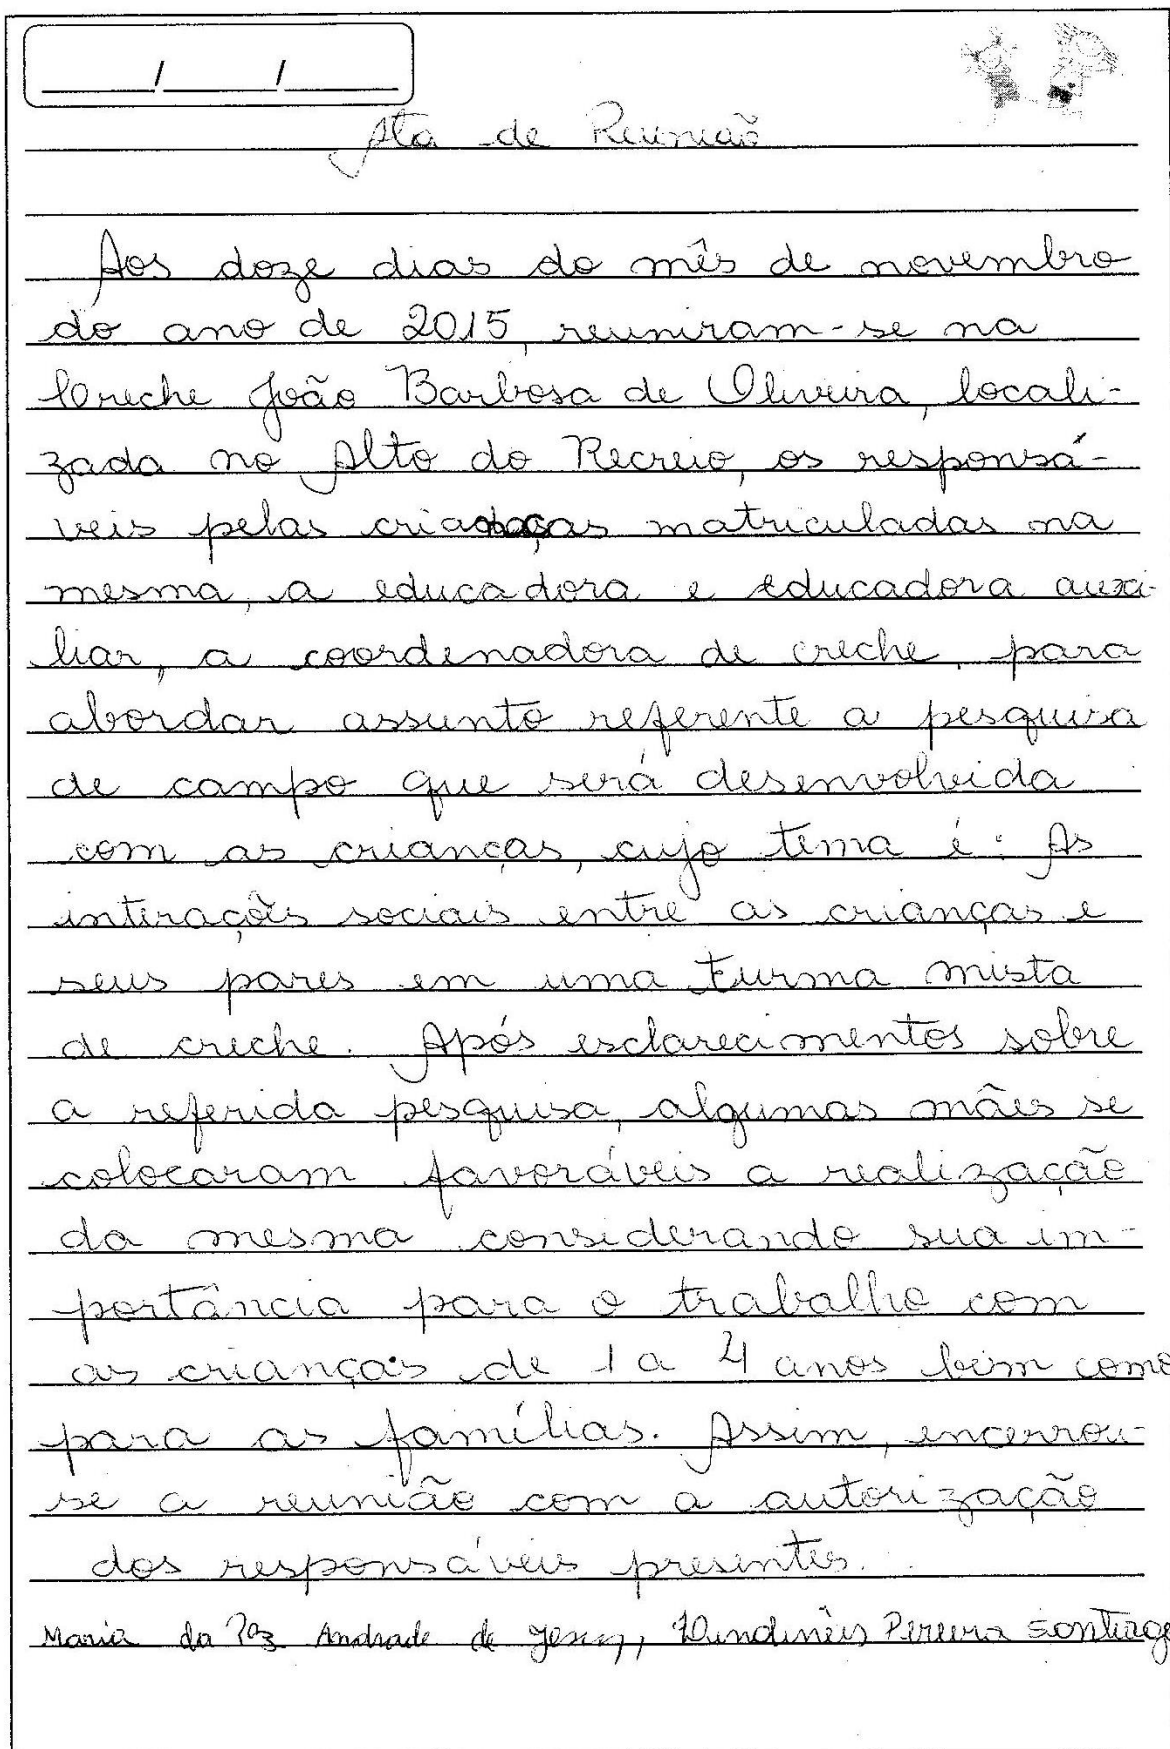 ____/____/____
Ata de Reunião
Aos doze dias do mês de novembro
do ano de 2015, reuniram-se na
Creche João Barbosa de Oliveira, locali-
zada no Alto do Recreio, os responsá-
veis pelas crianças matriculadas na
mesma, a educadora e educadora auxi-
liar, a coordenadora de creche, para
abordar assunto referente a pesquisa
de campo que será desenvolvida
com as crianças, cujo tema é: As
interações sociais entre as crianças e
seus pares em uma turma mista
de creche. Após esclarecimentos sobre
a referida pesquisa, algumas mães se
colocaram favoráveis a realização
da mesma considerando sua im-
portância para o trabalho com
as crianças de 1 a 4 anos bem como
para as famílias. Assim, encerrou-
se a reunião com a autorização
dos responsáveis presentes.
Maria da Paz Andrade de Jesus, Pereira Santiago